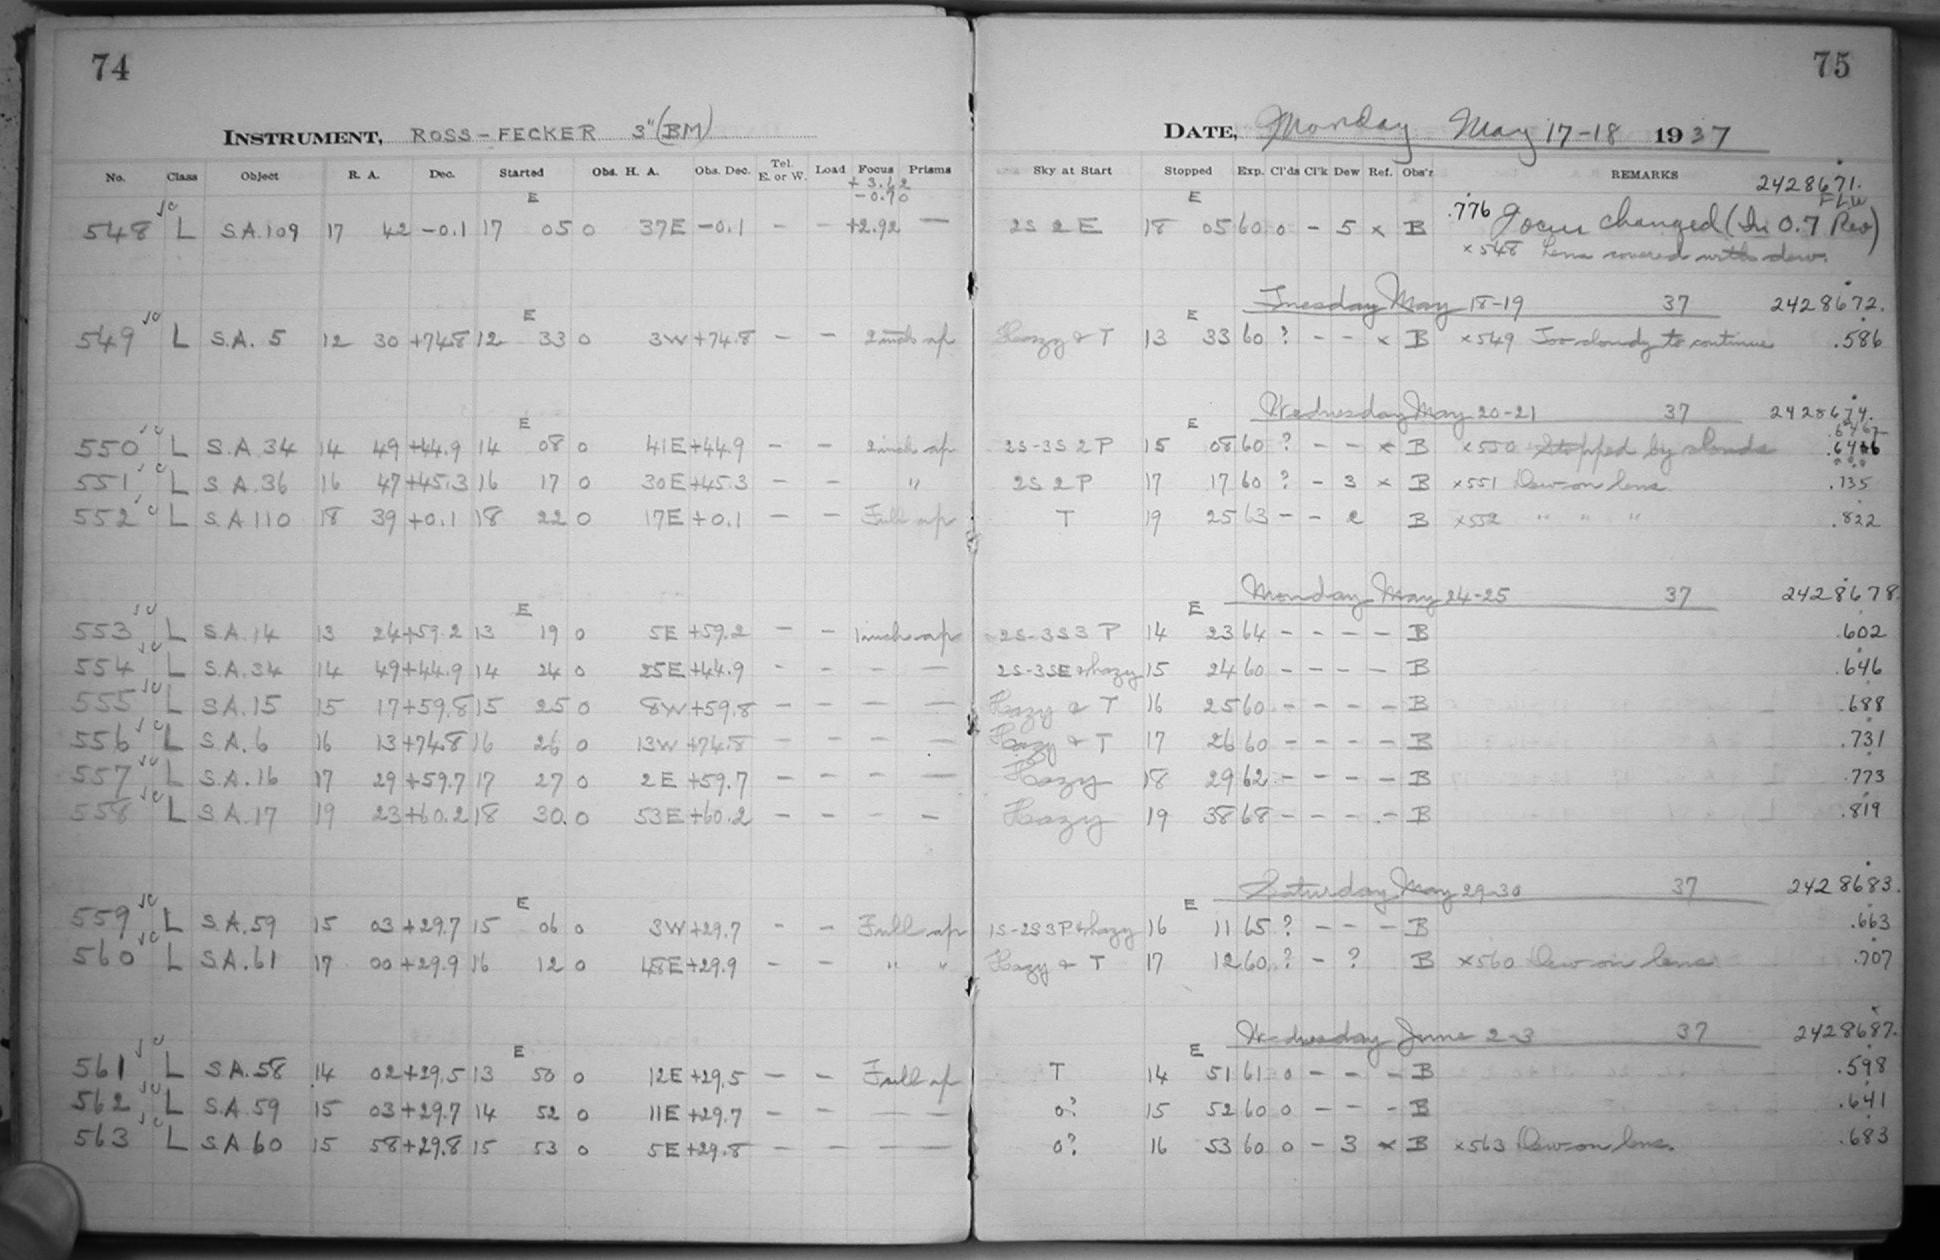 74
75
INSTRUMENT, ROSS-FECKER 3"(BM)
DATE, Monday May 17-18 1937
No. Class Object R. A. Dec. Started Obs. H. A. Obs. Dec. Tel. E. or W. Load Focus Prisms Sky at Start Stopped Exp. Cl'ds Cl'k Dew Ref. Obs'r REMARKS
+3.62 2428671.
E -0.70 E FLW
548 L S.A.109 17 42 -0.1 17 05 0 37E -0.1 - - +2.92 — 2S 2 E 18 05 60 0 - 5 x B .776 Focus changed (In 0.7 Rev)
x548 Lens covered with dew.
Tuesday May 18-19 37 2428672.
E E
549 L S.A. 5 12 30 +74.8 12 33 0 3W +74.8 - - 2 inch ap Hazy & T 13 33 60 ? - - x B x549 Too cloudy to continue .586
Wednesday May 20-21 37 2428674.
E E
550 L S.A.34 14 49 +44.9 14 08 0 41E +44.9 - - 2 inch ap 2S-3S 2 P 15 08 60 ? - - x B x550 Stopped by clouds
551 L S.A.36 16 47 +45.3 16 17 0 30E +45.3 - - " 2S 2 P 17 17 60 ? - 3 x B x551 Dew on lens .135
552 L S.A 110 18 39 +0.1 18 22 0 17E +0.1 - - Full ap T 19 25 63 - - 2 B x552 " " " .822
Monday May 24-25 37 2428678.
E E
553 L S.A.14 13 24 +59.2 13 19 0 5E +59.2 - - 1 inch ap 2S-3S 3 P 14 23 64 - - - - B .602
554 L S.A.34 14 49 +44.9 14 24 0 25E +44.9 - - - — 2S-3SE & hazy 15 24 60 - - - - B .646
555 L S.A.15 15 17 +59.8 15 25 0 8W +59.8 - - - — Hazy & T 16 25 60 - - - - B .688
556 L S.A.6 16 13 +74.8 16 26 0 13W +74.8 - - - — Hazy & T 17 26 60 - - - - B .731
557 L S.A.16 17 29 +59.7 17 27 0 2E +59.7 - - - — Hazy 18 29 62 - - - - B .773
558 L S.A.17 19 23 +60.2 18 30 0 53E +60.2 - - - - Hazy 19 38 68 - - - - B .819
Saturday May 29-30 37 2428683.
E E
559 L S.A.59 15 03 +29.7 15 06 0 3W +29.7 - - Full ap 1S-2S 3P & hazy 16 11 65 ? - - - B .663
560 L S.A.61 17 00 +29.9 16 12 0 48E +29.9 - - " " Hazy & T 17 12 60 ? - ? B x560 Dew on lens .707
Wednesday June 2-3 37 2428687.
E E
561 L S.A.58 14 02 +29.5 13 50 0 12E +29.5 - - Full ap T 14 51 61 0 - - - B .598
562 L S.A.59 15 03 +29.7 14 52 0 11E +29.7 - - - — 0? 15 52 60 0 - - - B .641
563 L S.A 60 15 58 +29.8 15 53 0 5E +29.8 - - — — 0? 16 53 60 0 - 3 x B x563 Dew on lens. .683